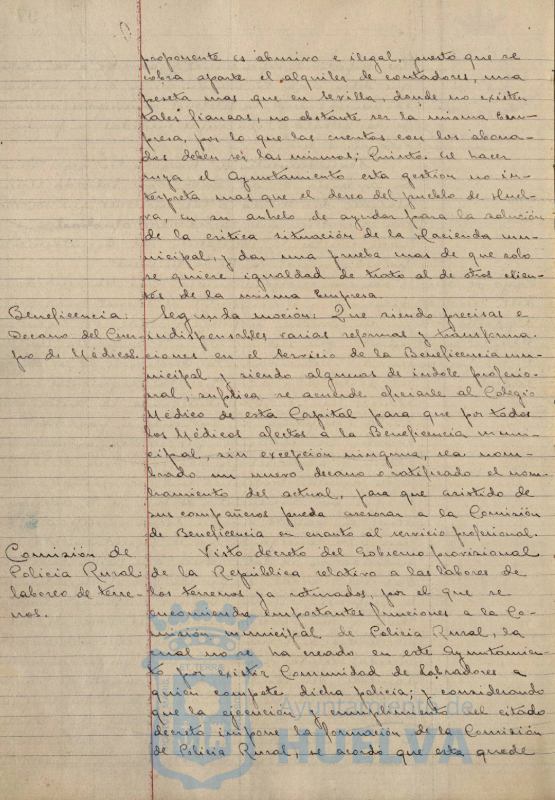 proponente es abusivo e ilegal, puesto que se
cobra aparte el alquiler de contadores, una
peseta mas que en Sevilla, donde no existen
tales fianzas, no obstante ser la misma Em-
presa, por lo que las cuentas con los abona-
dos deben ser las mismas; Quinto. Al hacer
suya el Ayuntamiento esta gestion no in-
terpreta mas que el deseo del pueblo de Huel-
va, en su anhelo de ayudar para la solución
de la critica situación de la Hacienda mu-
nicipal, y dar una prueba mas de que solo
se quiere igualdad de trato al de otros clien-
tes de la misma Empresa.
Beneficencia:
Decano del Cuer-
po de Médicos.
Segunda moción: Que siendo precisas e
indispensables varias reformas y transforma-
ciones en el servicio de la Beneficencia mu-
nicipal y siendo algunas de indole profesio-
nal, suplica se acuerde oficiarle al Colegio
Médico de esta Capital para que por todos
los Médicos afectos a la Beneficencia muni-
cipal, sin excepción ninguna, sea nom-
brado un nuevo decano o ratificado el nom-
bramiento del actual, para que asistido de
sus compañeros pueda asesorar a la Comisión
de Beneficencia en cuanto al servicio profesional.
Comisión de
Policia Rural
laboreo de terre-
nos.
Visto decreto del Gobierno provisional
de la República relativo a las labores de
los terrenos ya roturados, por el que se
encomienda importantes funciones a la Co-
misión municipal de Policia Rural, la
cual no se ha creado en este Ayuntamien-
to por existir Comunidad de Labradores a
quien compete dicha policia; y considerando
que la ejecución y cumplimiento del citado
decreto impone la formación de la Comisión
de Policia Rural, se acordó que esta quede
Ayuntamiento de
HUELVA